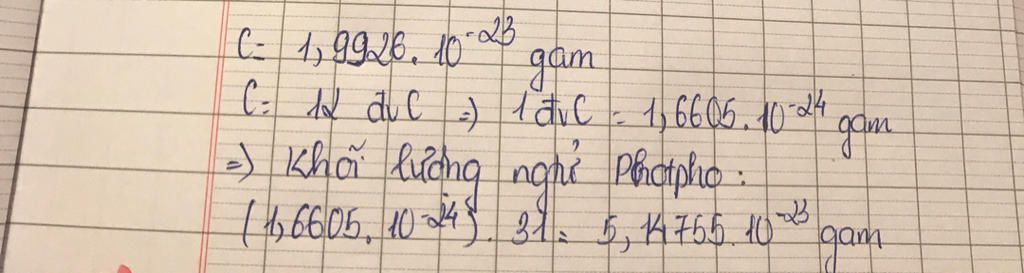 C = 1,9926. 10⁻²³ gam
C = 12 đvC => 1 đvC = 1,6605. 10⁻²⁴ gam
=> Khối lượng nghỉ Photpho :
(1,6605. 10⁻²⁴). 31 = 5,14755. 10⁻²³ gam